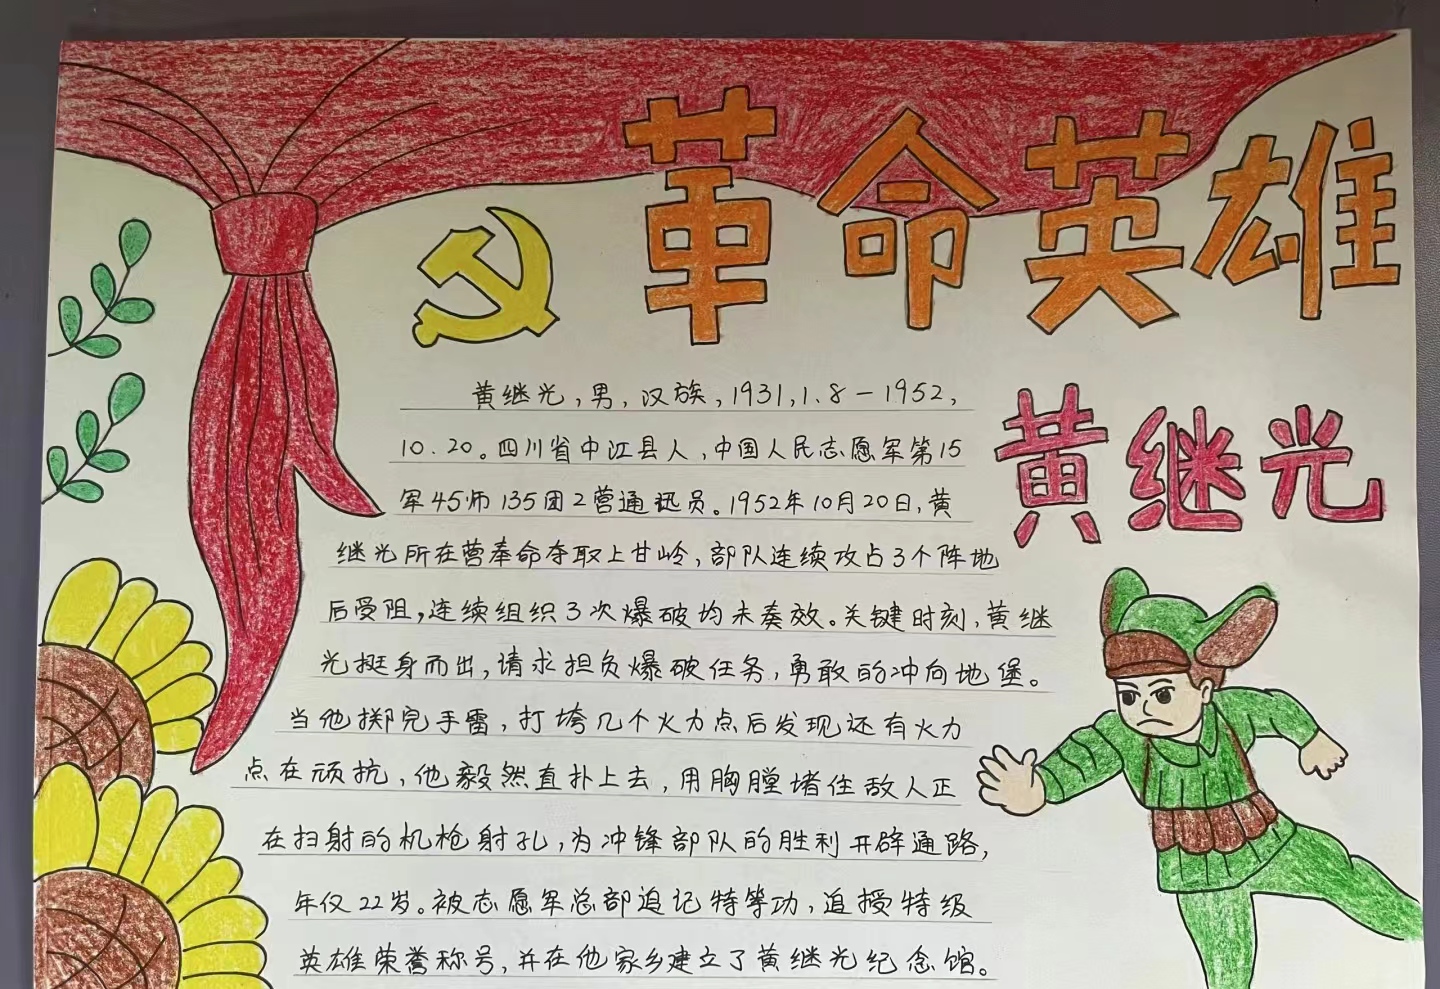 革命英雄
黄继光
黄继光,男,汉族,1931,1.8-1952,
10.20。四川省中江县人,中国人民志愿军第15
军45师135团2营通讯员。1952年10月20日,黄
继光所在营奉命夺取上甘岭,部队连续攻占3个阵地
后受阻,连续组织3次爆破均未奏效。关键时刻,黄继
光挺身而出,请求担负爆破任务,勇敢的冲向地堡。
当他掷完手雷,打垮几个火力点后发现还有火力
点在顽抗,他毅然直扑上去,用胸膛堵住敌人正
在扫射的机枪射孔,为冲锋部队的胜利开辟通路,
年仅22岁。被志愿军总部追记特等功,追授特级
英雄荣誉称号,并在他家乡建立了黄继光纪念馆。